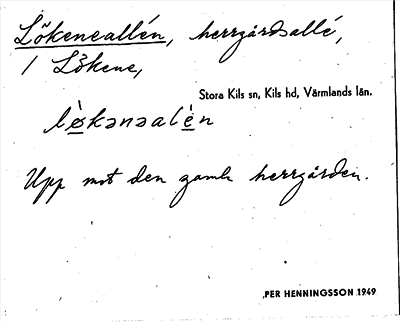 Lökeneallén, herrgårdsallé,
i Lökene,
Stora Kils sn, Kils hd, Värmlands län.
lø̀kənəalén
Upp mot den gamla herrgården.
PER HENNINGSSON 1949